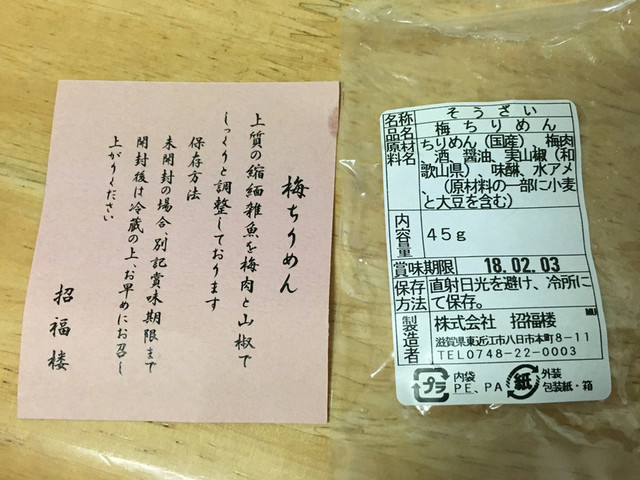 梅ちりめん
上質の縮緬雑魚を梅肉と山椒で
しっくりと調整しております
保存方法
未開封の場合、別記賞味期限まで
開封後は冷蔵の上、お早めにお召し
上がりください
招福楼
名称 そうざい
品名 梅ちりめん
原材料名 ちりめん(国産)、梅肉
、酒、醤油、実山椒(和
歌山県)、味醂、水アメ
、(原材料の一部に小麦
と大豆を含む)
内容量 45g
賞味期限 18.02.03
保存方法 直射日光を避け、冷所に
て保存。
製造者 株式会社 招福楼
滋賀県東近江市八日市本町8-11
TEL0748-22-0003
プラ 内袋 PE、PA 紙 外装 包装紙・箱